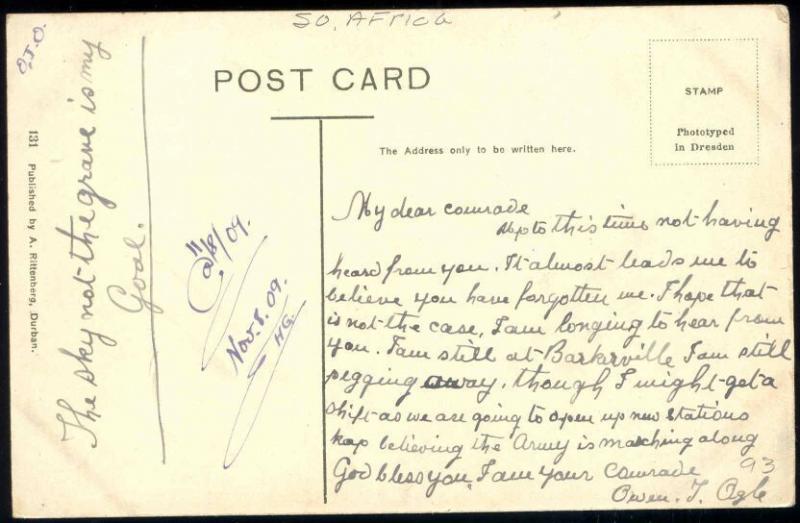 SO. AFRICA
O.T.O.
POST CARD
STAMP
Phototyped
in Dresden
The Address only to be written here.
131 Published by A. Rittenberg, Durban.
The sky not the grave is my
Goal.
Nov. 8. 09.
HG.
My dear comrade
Up to this time not having
heard from you. It almost leads me to
believe you have forgotten me. I hope that
is not the case, I am longing to hear from
you. I am still at Barkerville I am still
pegging away, though I might get a
shift as we are going to open up new stations
keep believing the Army is marching along
God bless you, I am your comrade
Owen. T. Ogle
93